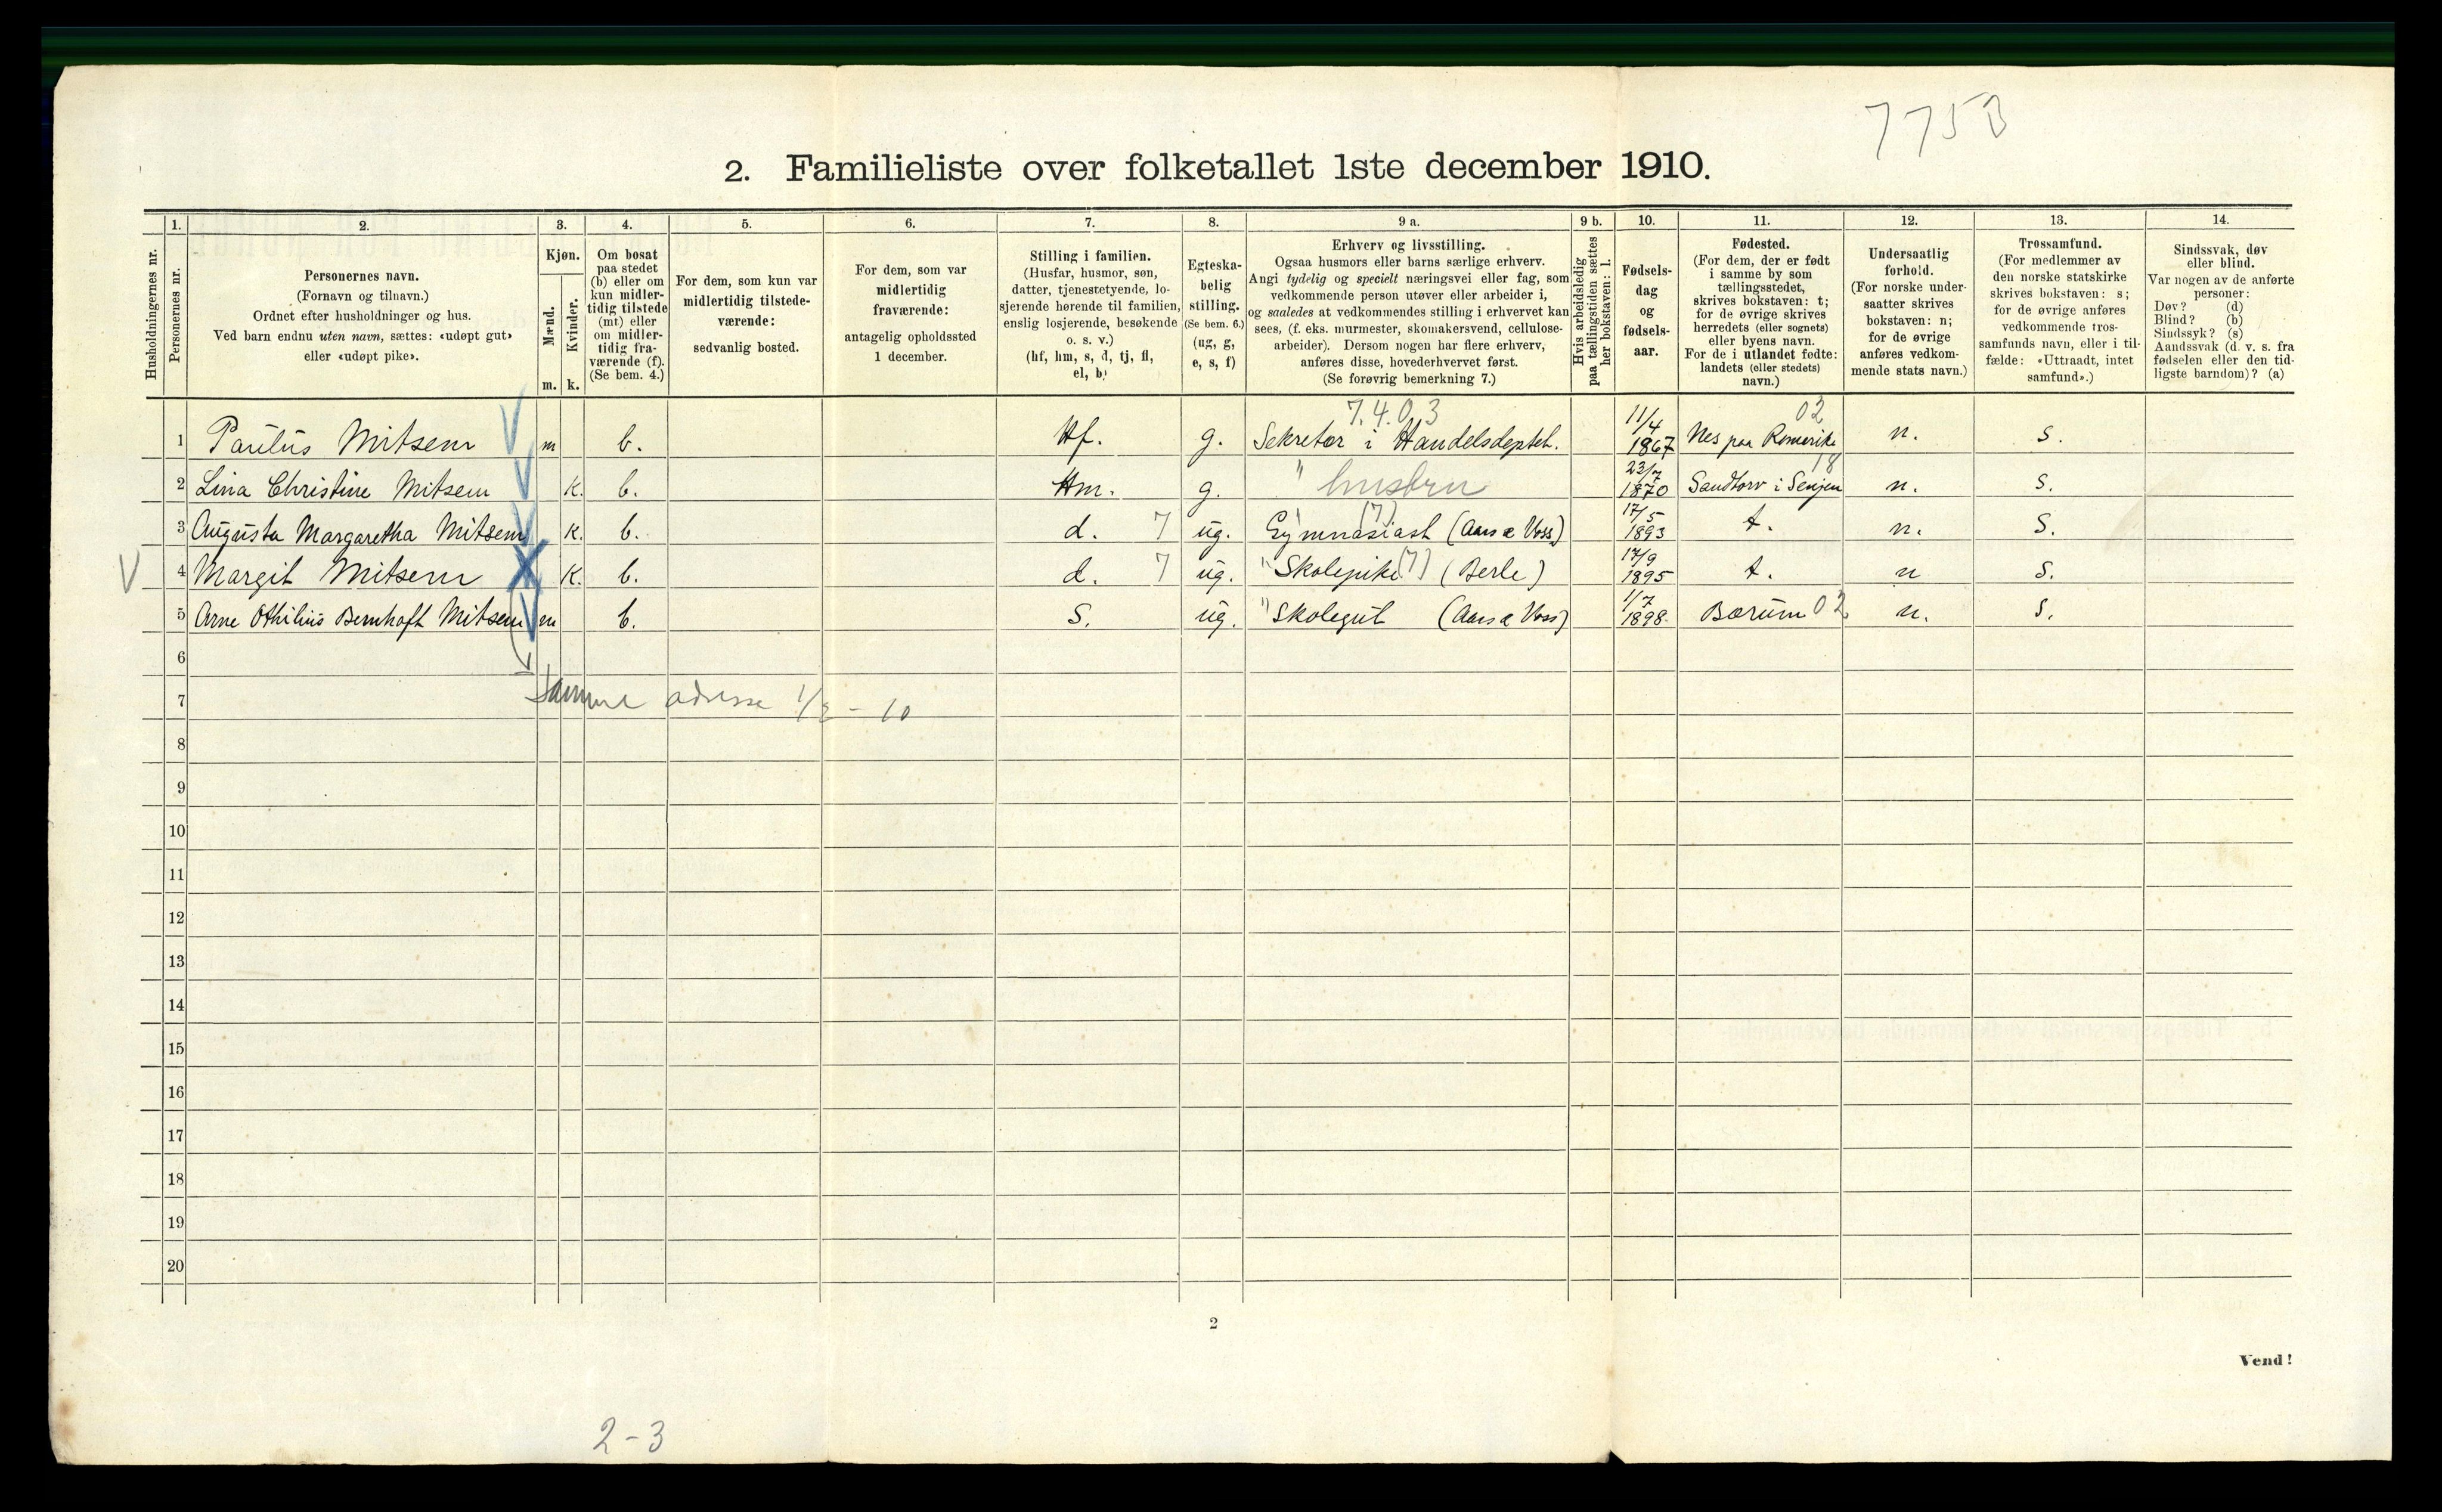 7753
2. Familieliste over folketallet 1ste december 1910.
Husholdningernes nr.
1.
Personernes nr.
2.
Personernes navn.
(Fornavn og tilnavn.)
Ordnet efter husholdninger og hus.
Ved barn endnu uten navn, sættes: «udøpt gut»
eller «udøpt pike».
3.
Kjøn.
Mænd.
Kvinder.
m. k.
4.
Om bosat
paa stedet
(b) eller om
kun midler-
tidig tilstede
(mt) eller
om midler-
tidig fra-
værende (f).
(Se bem. 4.)
5.
For dem, som kun var
midlertidig tilstede-
værende:
sedvanlig bosted.
6.
For dem, som var
midlertidig
fraværende:
antagelig opholdssted
1 december.
7.
Stilling i familien.
(Husfar, husmor, søn,
datter, tjenestetyende, lo-
sjerende hørende til familien,
enslig losjerende, besøkende
o. s. v.)
(hf, hm, s, d, tj, fl,
el, b)
8.
Egteska-
belig
stilling.
(Se bem. 6.)
(ug, g,
e, s, f)
9 a.
Erhverv og livsstilling.
Ogsaa husmors eller barns særlige erhverv.
Angi tydelig og specielt næringsvei eller fag, som
vedkommende person utøver eller arbeider i,
og saaledes at vedkommendes stilling i erhvervet kan
sees, (f. eks. murmester, skomakersvend, cellulose-
arbeider). Dersom nogen har flere erhverv,
anføres disse, hovederhvervet først.
(Se forøvrig bemerkning 7.)
9 b.
Hvis arbeidsledig
paa tællingstiden sættes
her bokstaven: l.
10.
Fødsels-
dag
og
fødsels-
aar.
11.
Fødested.
(For dem, der er født
i samme by som
tællingsstedet,
skrives bokstaven: t;
for de øvrige skrives
herredets (eller sognets)
eller byens navn.
For de i utlandet fødte:
landets (eller stedets)
navn.)
12.
Undersaatlig
forhold.
(For norske under-
saatter skrives
bokstaven: n;
for de øvrige
anføres vedkom-
mende stats navn.)
13.
Trossamfund.
(For medlemmer av
den norske statskirke
skrives bokstaven: s;
for de øvrige anføres
vedkommende tros-
samfunds navn, eller i til-
fælde: «Uttraadt, intet
samfund».)
14.
Sindssvak, døv
eller blind.
Var nogen av de anførte
personer:
Døv? (d)
Blind? (b)
Sindssyk? (s)
Aandssvak (d. v. s. fra
fødselen eller den tid-
ligste barndom)? (a)
7.4.03 11/4 02
1 Paulus Mitsem m b. Hf. g. Sekretær i Handelsdeptet. 1867 Nes paa Romerike n. s.
23/7 18
2 Lina Christine Mitsem k. b. Hm. g. " hustru 1870 Sandtorv i Senjen n. s.
(7) 17/5
3 Augusta Margaretha Mitsem k. b. d. 7 ug. Gymnasiast (Aars & Voss) 1893 t. n. s.
17/9
4 Margit Mitsem k. b. d. 7 ug. " Skolepike (7) (Berle) 1895 t. n s.
1/7
5 Arne Othilius Bernhoft Mitsem m b. s. ug. " Skolegut (Aars & Voss) 1898 Bærum 02 n. s.
6
7 Samme adresse 1/2 - 10
8
9
10
11
12
13
14
15
16
17
18
19
20
2
Vend!
2-3